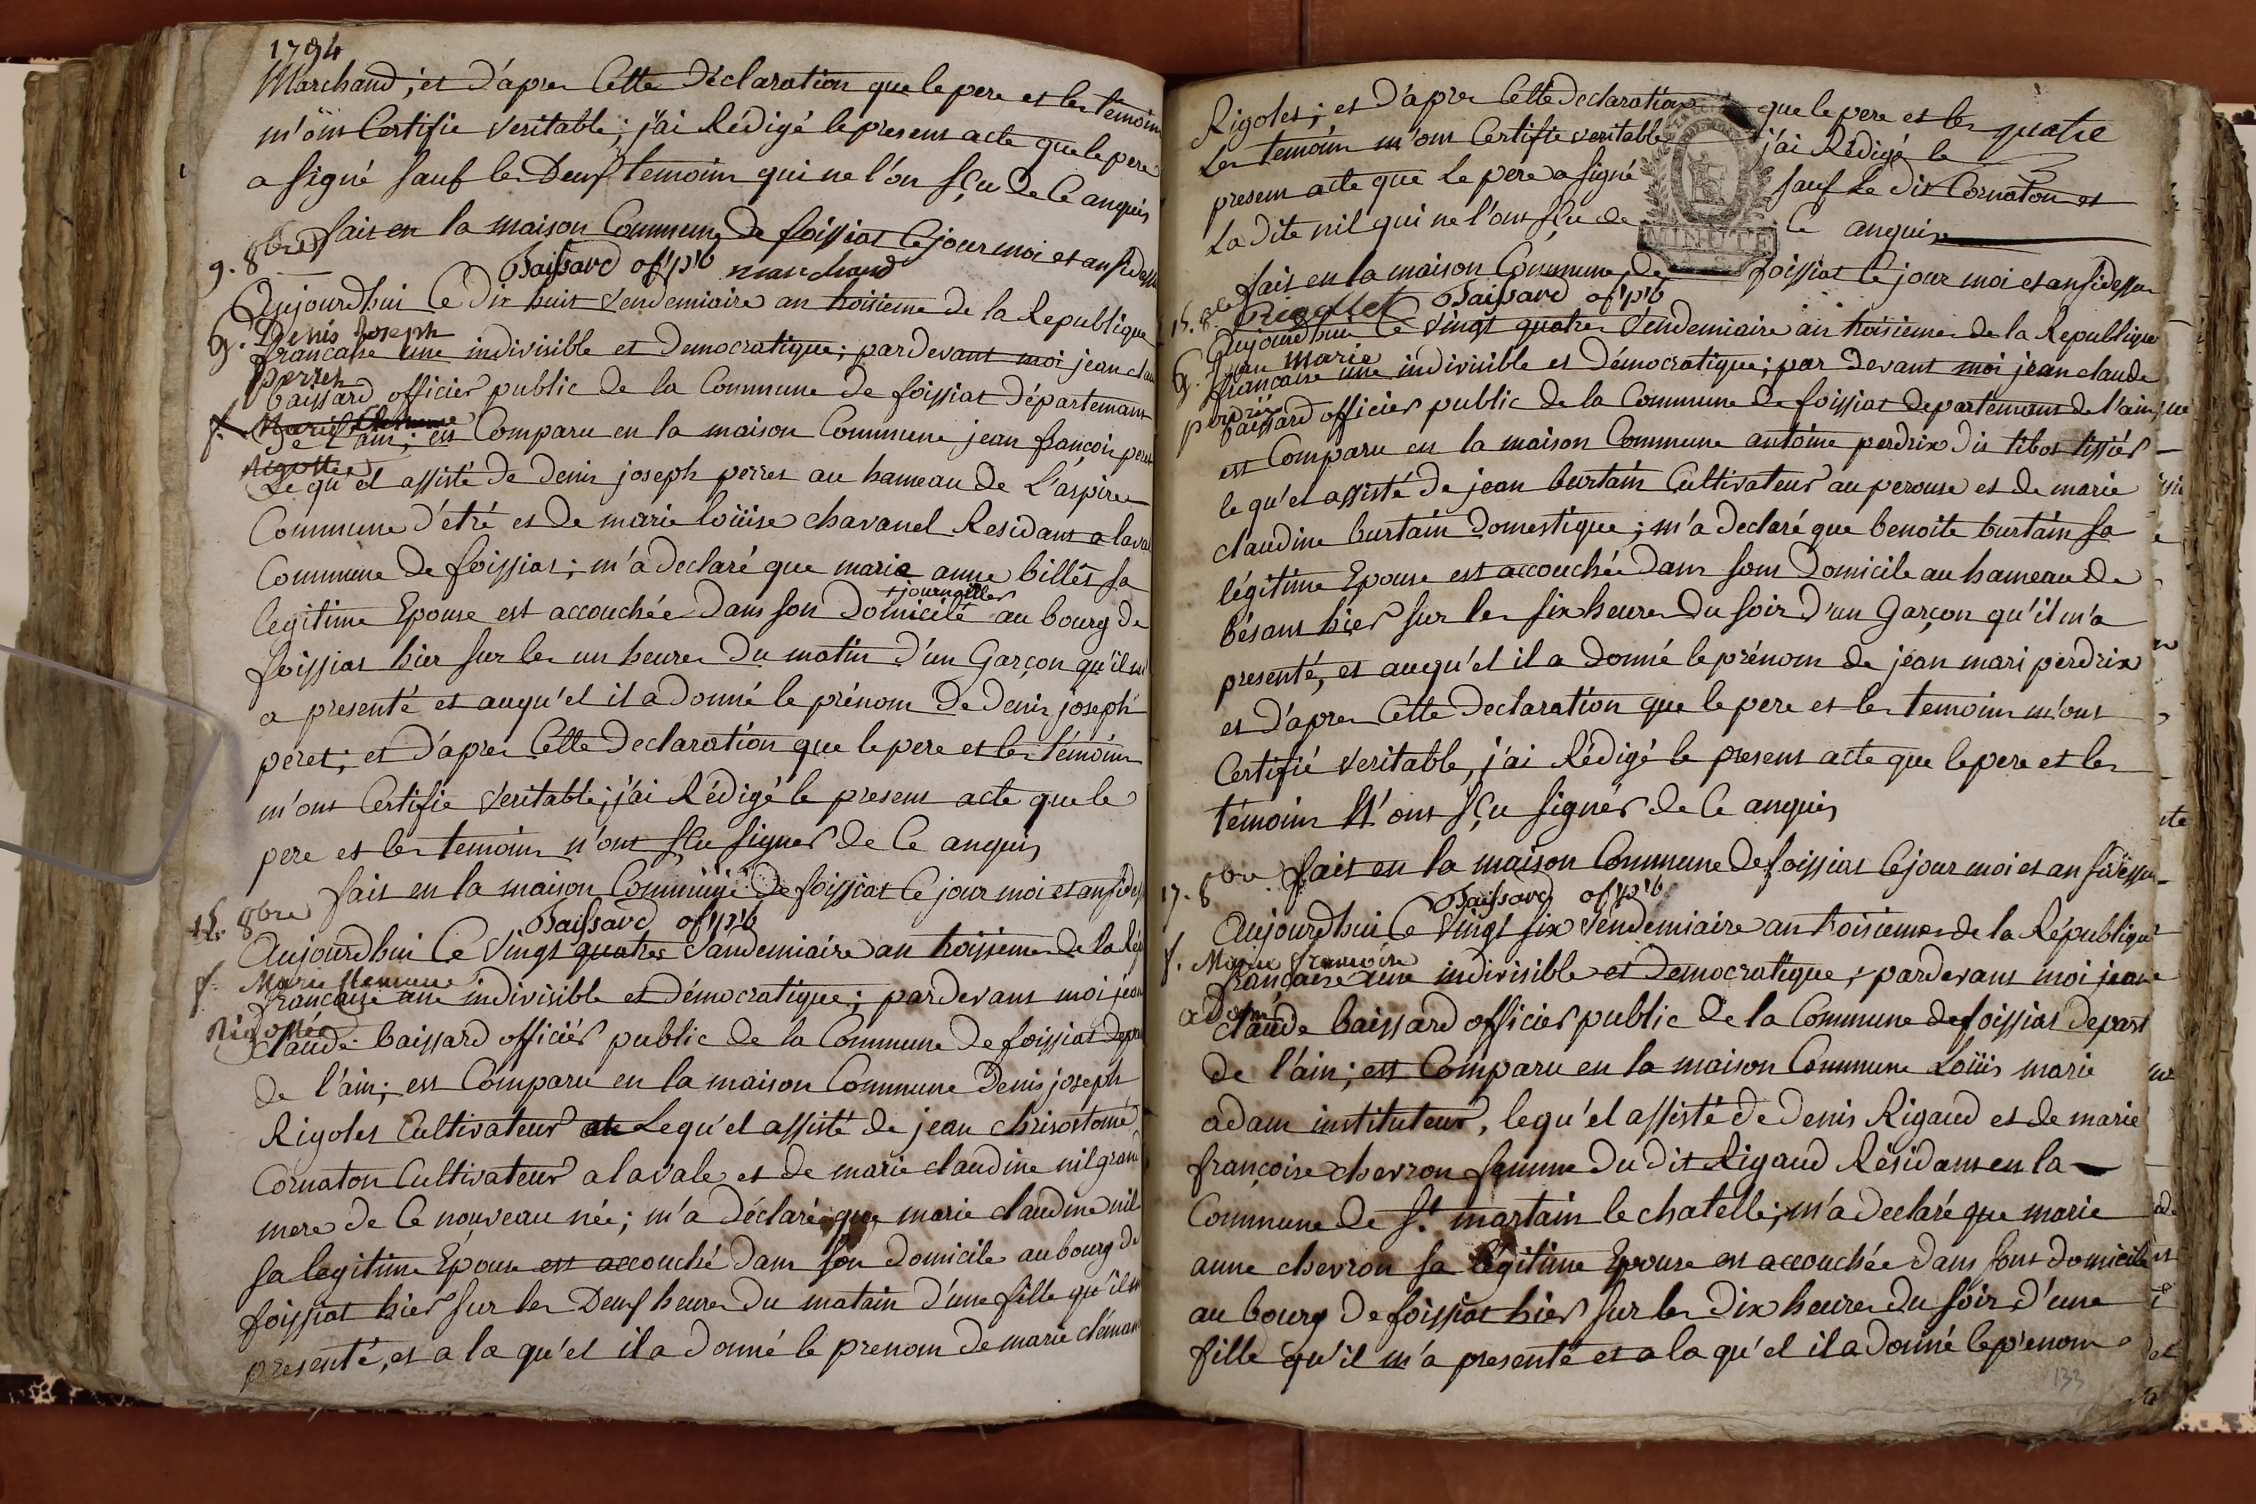 1794
Marchand, et d'apres Cette Déclaration que le pere et les temoins
m'ons Certifie veritable; j'ai Rédigé le presens acte que le pere
a signé sauf les Deux temoins qui ne l'on sçu de Ce anquis
9. 8bre fais en la maison Commune de foissias Ce jour moi et an sidessus
Baissard of. p'b marchand
Aujourdhui Ce dix huis vendemiaire an troisieme de la Republique
G. Denis Joseph
francaise une indivisible et Democratique; pardevans moi jean clau
perret
baissard officier public de la Commune de foissias départemans
f. Marie Clemence
de l'ain; ess Comparu en la maison Commune jean françois peres
Rigollet
Lequ'el assisté de denis joseph perres au hameau de L'aspire
Commune d'etré et de marie loüise chavanel Residans a laval
Commune de foissias; m'a declaré que marie anne billes sa
+journallier
legitime Epouse est accouchée dans son domicile au bourg de
foissias hier sur les un heures du matin d'un Garçon qu'il m'
a presenté et auqu'el il a donné le prénom de denis joseph
peret; et d'apres Cette Declaration que le pere et les témoins
m'ons Certifie veritable; j'ai Rédigé le presens acte que le
pere et les temoins n'ons sçu signer de Ce anquis
fais en la maison Commune de foissias Ce jour moi et an sides
15. 8bre
Baissard of. p'b
Aujourdhui Ce vingt quatres vandemiaire an troissieme de la Ré
f. Marie Clemence
francaise une indivisible et démocratique; pardevans moi jean
Rigollet
claude baissard officiér public de la Commune de foissias depar
de l'ain; ess Comparu en la maison Commune Denis joseph
Rigoles Cultivateur Lequ'el assisté de jean chrisostome
Cornaton Cultivateur a lavale et de marie claudine nil gran
mere de Ce nouveau née; m'a déclaré que marie claudine nil
sa legitime Epouse ess accouché dans son domicile au bourg de
foissias hier sur les Deux heures du matain d'une fille qu'il m
presenté, et a la qu'el il a donné le prenom de marie cléman
Rigoles; et d'apres Cette declaration que le pere et les quatre
Les temoins m'ons Certifie veritable j'ai Rédigé le
presens acte que le pere a signé sauf le dit Cornaton et
La dite nil qui ne l'ons sçu de Ce anquis
MINUTE
fais en la maison Commune de foissias le jour moi et an sidessus
Rigollet Baissard of. p'b
15. 8bre
Aujourdhui Ce vingt quatres vendemiaire an troisieme de la Republique
G. Jean Marie
francaise une indivisible et démocratique; par devans moi jean claude
perdrix
baissard officier public de la Commune de foissias departemens de l'ain;
est Comparu en la maison Commune antoine perdrix dis tibos tissiér
le qu'el assisté de jean burtain Cultivateur au perouse et de marie
claudine burtain domestique; m'a declaré que benoite burtain sa
légitime Epouse est accouchée dans sons domicile au hameau de
bésans hier sur les six heures du soir d'un Garçon qu'il m'a
presenté, et auqu'el il a donné le prénom de jean mari perdrix
et d'apres Cette declaration que le pere et les temoins m'ons
Certifié veritable, j'ai Rédigé le presens acte que le pere et les
témoins N'ons sçu signér de Ce anquis
fais en la maison Commune de foissias Ce jour moi et an sidessus
17. 8bre
Baissard of. p'b
Aujourdhui Ce vingt six vendemiaire an troisieme de la République
f. Marie francoise
française une indivisible et democratique, pardevans moi jean
adam
claude baissard officier public de la Commune de foissias depart
de l'ain; ess Comparu en la maison Commune Loüis marie
adam instituteur, lequ'el assisté de denis Rigaud et de marie
françoise chevron femme du dit Rigaud Résidans en la
Commune de St. martain le chatelle; m'a declaré que marie
anne chevron sa légitime Epouse est accouchée dans sons domicile
au bourg de foissias hier sur les dix heures du soir, d'une
fille qu'il m'a presenté et a la qu'el il a donné le prenom
133